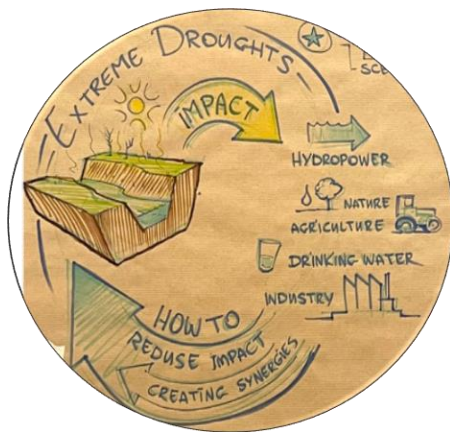 EXTREME DROUGHTS
IMPACT
HYDROPOWER
NATURE
AGRICULTURE
DRINKING WATER
INDUSTRY
HOW TO
REDUSE IMPACT
CREATING SYNERGIES